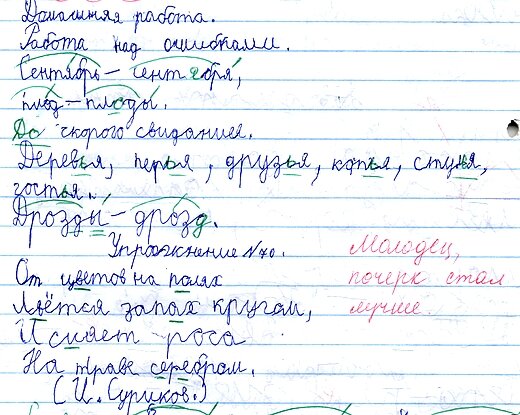 Домашняя работа.
Работа над ошибками.
Сентябрь – сентября,
плод – плоды.
До скорого свидания.
Деревья, перья, друзья, копья, стулья,
гостья.
Дрозды – дрозд.
Упражнение №70.
От цветов на полях
Льётся запах кругом,
И сияет роса
На траве серебром.
(И. Суриков.)
Молодец,
почерк стал
лучше.